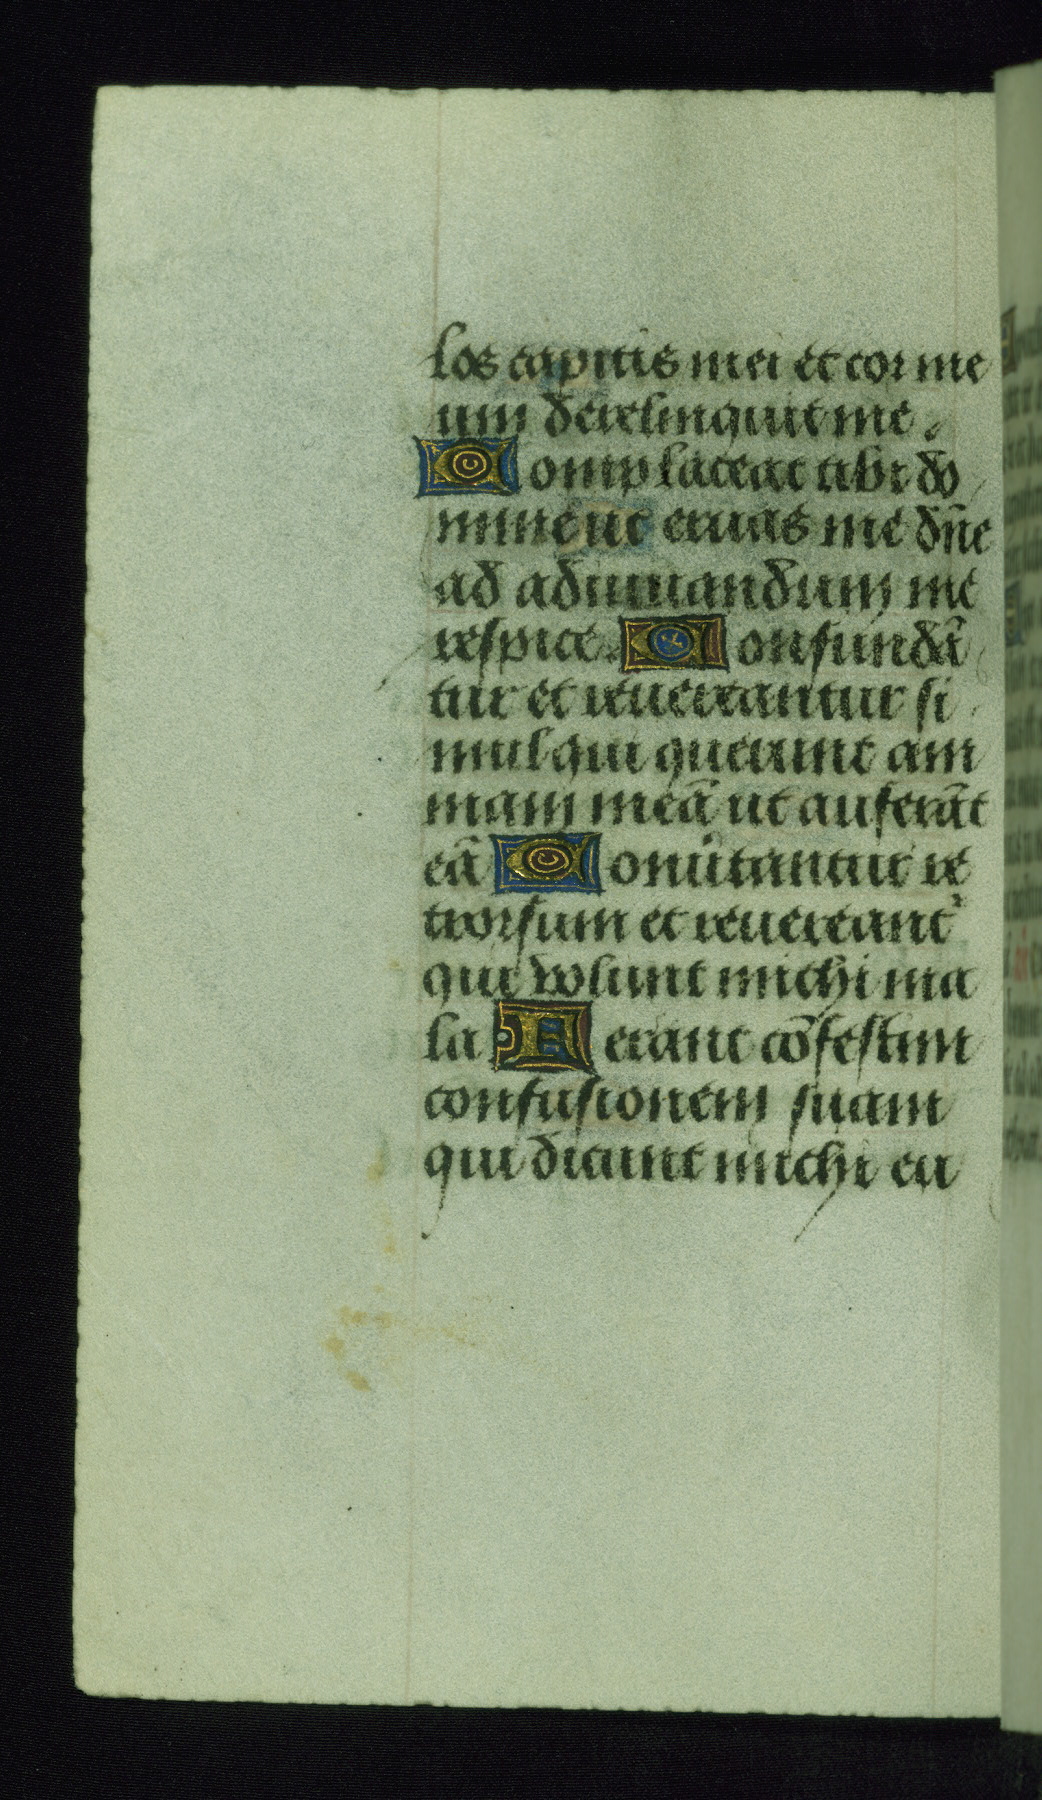 los capitis mei et cor me
um derelinquit me.
Complaceat tibi do
mine ut eruas me dñe
ad adiuuandum me
respice. Confundã
tur et reuereantur si
mul qui querunt am
mam meã ut auferãt
eã Conũtantur re
trorsum et reuereant᷑
qui volunt michi ma
la. Ferant cõfestim
confusionem suam
qui dicunt michi eu